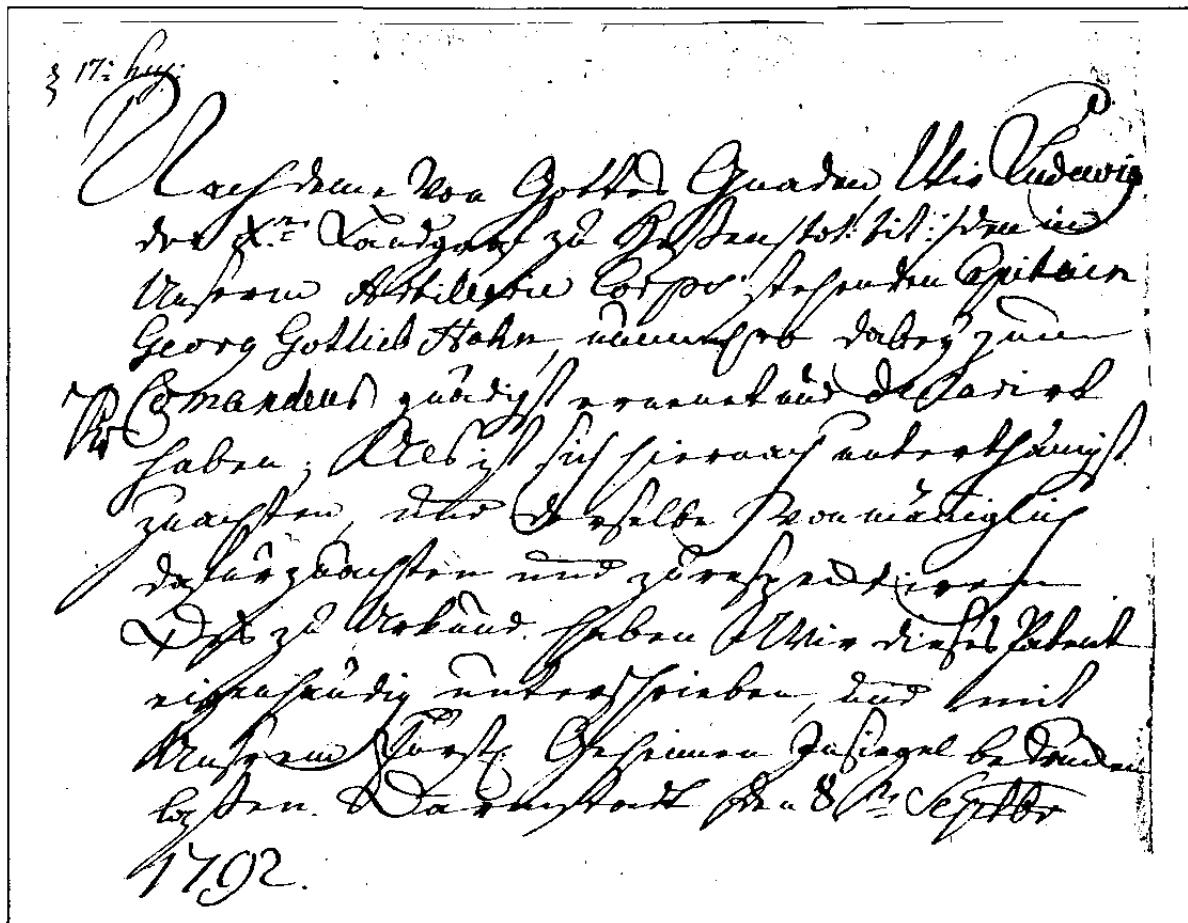 17: huj:
Nachdeme Von Gottes Gnaden Wir Ludewig
der X.te Landgraf zu Heßen :/: tot: tit: :/: den in
Unserm Artillerie Corps stehenden Capitain
Georg Gottlieb Hahn, nunmehro dabey zum
Comandeur gnädigst ernenet und declarirt
haben; Als ist sich hiernach unterthänigst
zuachten, und derselbe von mäniglich
dafür zuachten und zurespectiren
Deß zu Urkund haben Wir dieses Patent
eigenhändig unterschrieben, und mit
Unserem Fürstl. Geheimen Insiegel bedrucken
laßen. Darmstadt den 8ten Septbr
1792.